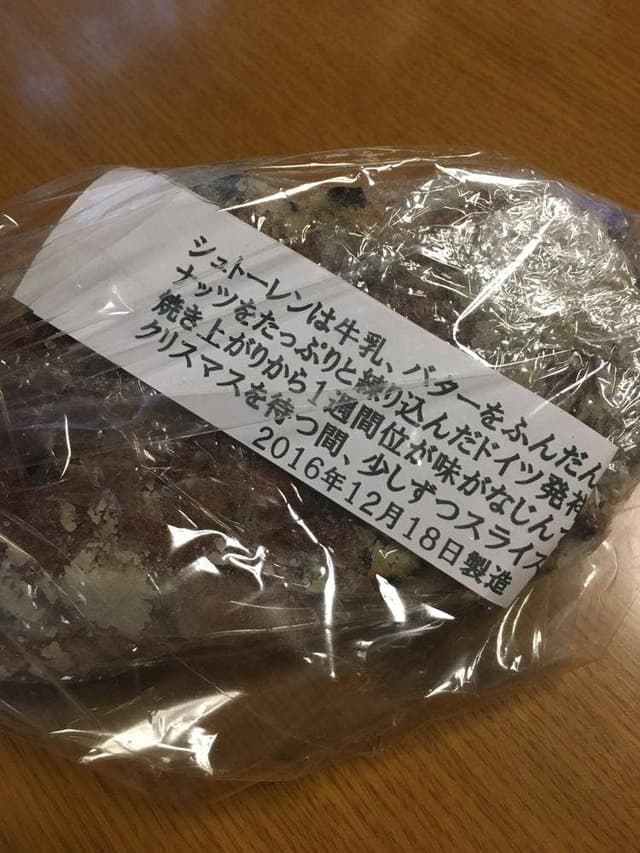 シュトーレンは牛乳、バターをふんだん
ナッツをたっぷりと練り込んだドイツ発祥
焼き上がりから1週間位が味がなじん
クリスマスを待つ間、少しずつスライス
2016年12月18日製造